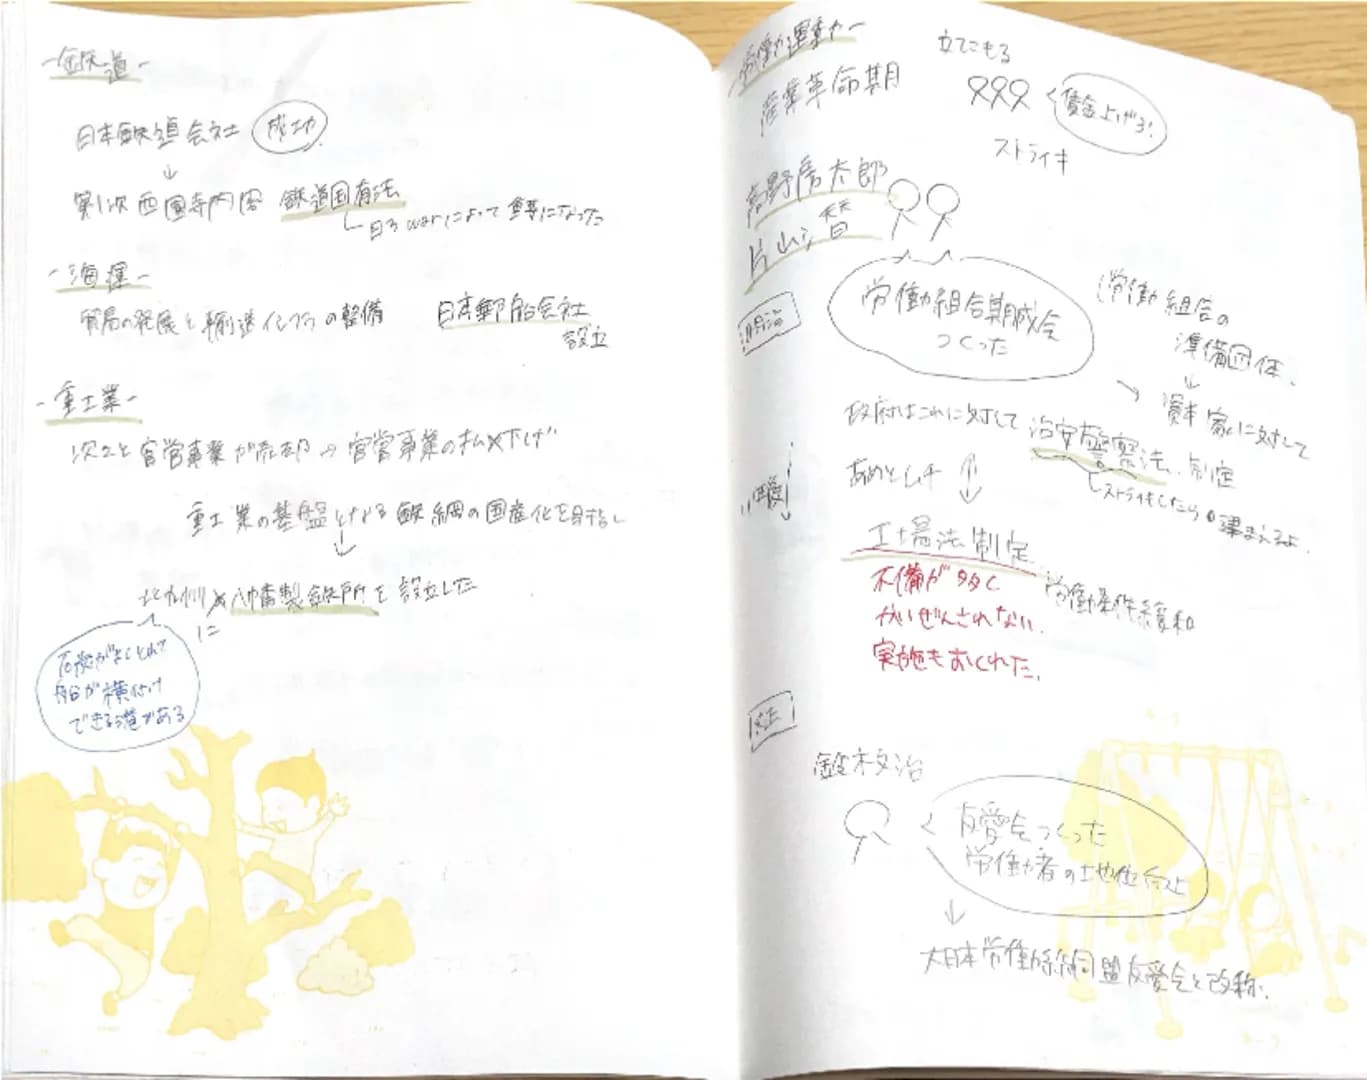 -鉄道-
日本鉄道会社 成功
↓
第1次西園寺内閣 鉄道国有法
日ろwarによって重要になった
-海運-
貿易の発展と輸送インフラの整備 日本郵船会社
設立
-重工業-
次々と官営事業が売却→官営事業の払い下げ
重工業の基盤となる鉄鋼の国産化を目指し
↓
北九州に八幡製鉄所を設立した
石炭がよくとれて
船が横付け
できる港がある
労働運動や-
産業革命期
立てこもる
賃金上げろ!
ストライキ
高野房太郎
片山潜
明治
労働組合期成会
つくった
労働組合の
準備団体、
↓
→ 資本家に対して
政府はこれに対して 治安警察法、制定
ストライキしたら逮まえるよ。
あめとムチ
工場法制定
労働条件緩和
不備が多く
かいぜんされない。
実施もおくれた。
大正
鈴木文治
友愛会つくった
労働者の地位向上
↓
大日本労働総同盟友愛会と改称。